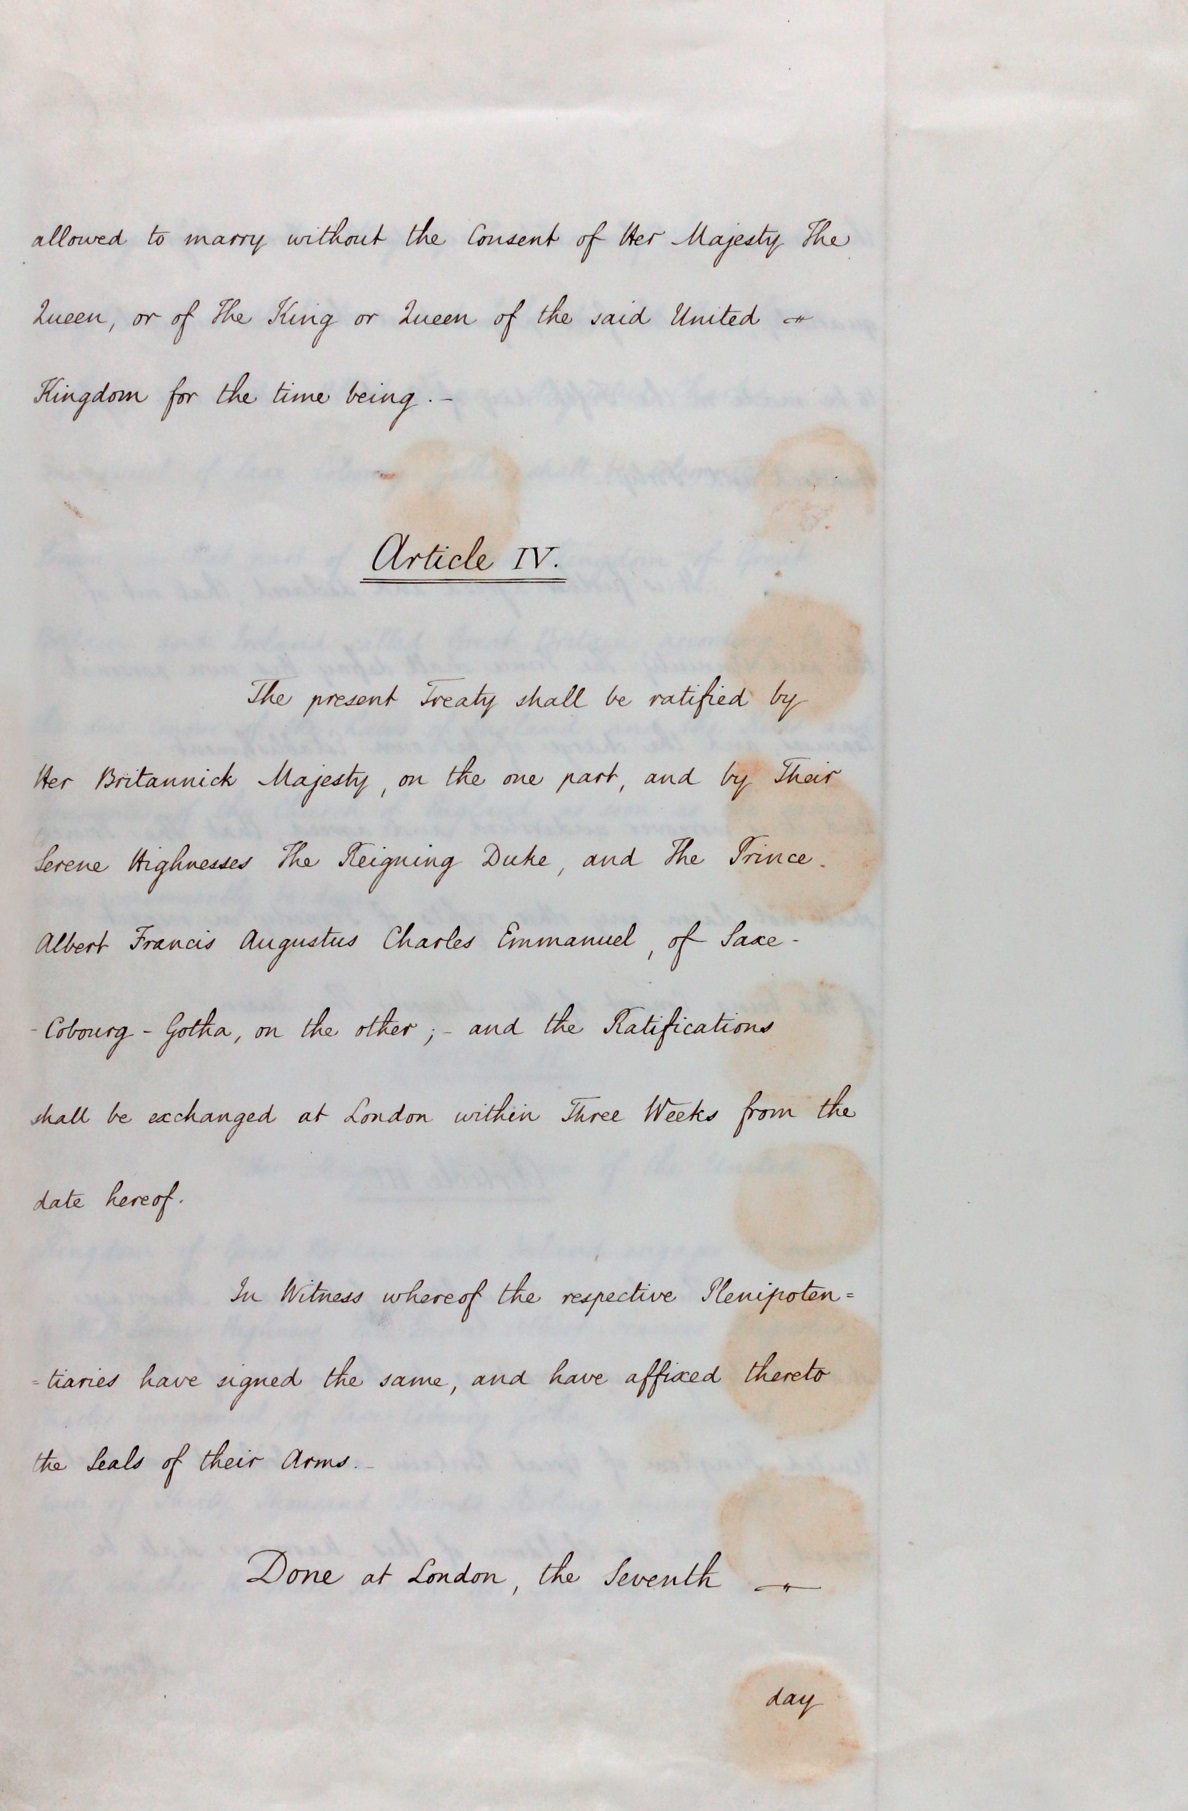 allowed to marry without the Consent of Her Majesty The
Queen, or of The King or Queen of the said United
Kingdom for the time being. -
Article IV.
The present Treaty shall be ratified by
Her Britannick Majesty, on the one part, and by Their
Serene Highnesses The Reigning Duke, and The Prince
Albert Francis Augustus Charles Emmanuel, of Saxe-
-Cobourg-Gotha, on the other; - and the Ratifications
shall be exchanged at London within Three Weeks from the
date hereof.
In Witness whereof the respective Plenipoten=
=tiaries have signed the same, and have affixed thereto
the Seals of their Arms. -
Done at London, the Seventh
day